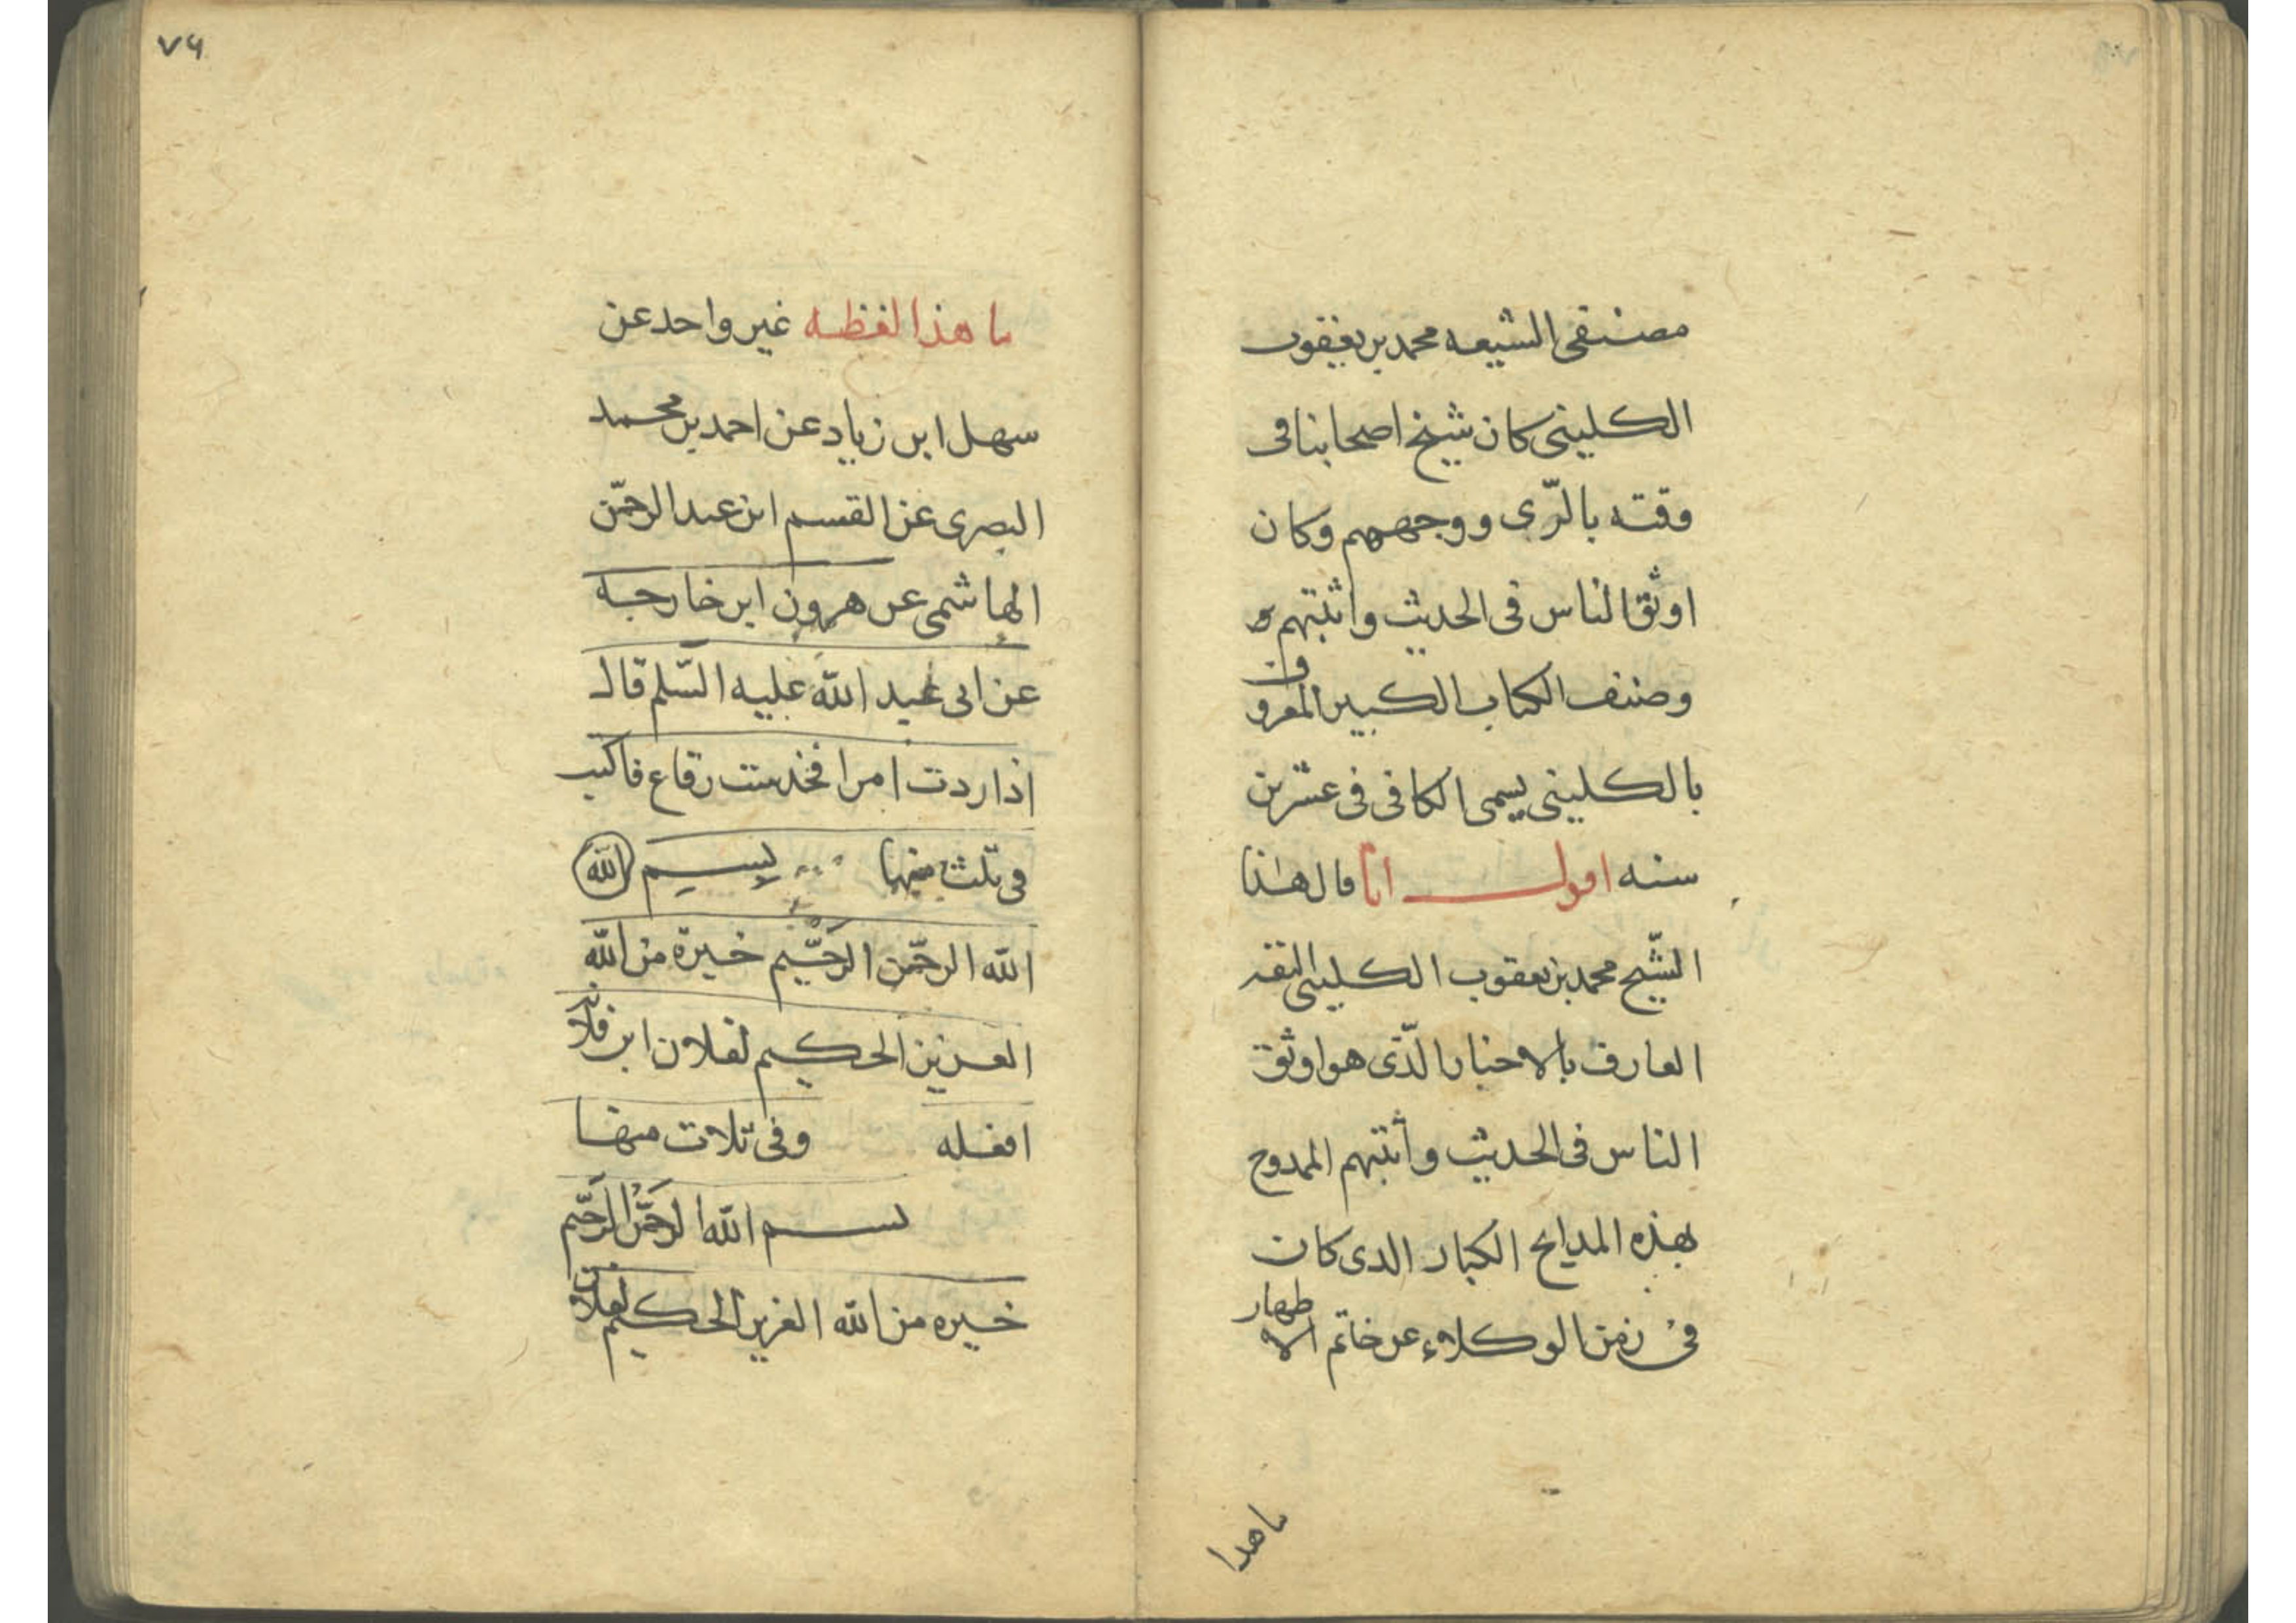 مصنفى الشيعه محمد بن يعقوب
الكلينى كان شيخ اصحابنا فى
وقته بالرّى ووجههم وكان
اوثق الناس فى الحديث واثبتهم
وصنف الكتاب الكبير المعروف
بالكلينى يسمى الكافى فى عشرين
سنه اقول انا قال هذا
الشّيخ محمد بن يعقوب الكلينى الثقه
العارف بالاخبار الّذى هو اوثق
الناس فى الحديث وأثبتهم الممدوح
بهذه المدايح الكبار الدى كان
فى زمن الوكلاء عن خاتم الاطهار
ما هدا
٧٦
ما هذا لفظه غير واحد عن
سهل ابن زياد عن احمد بن محمد
البصرى عن القسم ابن عبد الرحمّن
الهاشمى عن هرون ابن خارجه
عن ابى عبد اللّه عليه السّلم قال
اذا اردت امرا فخذ ست رقاع فاكتب
فى ثلث منها بسم اللّه
اللّه الرحمّن الرَحّيم خيرة من اللّه
العزيز الحكيم لفلان ابن فلانه
افعله وفى ثلاث منها
بسم اللّه الرَحمّن الرَحّيم
خيره من اللّه العزيز الحكيم لفلان